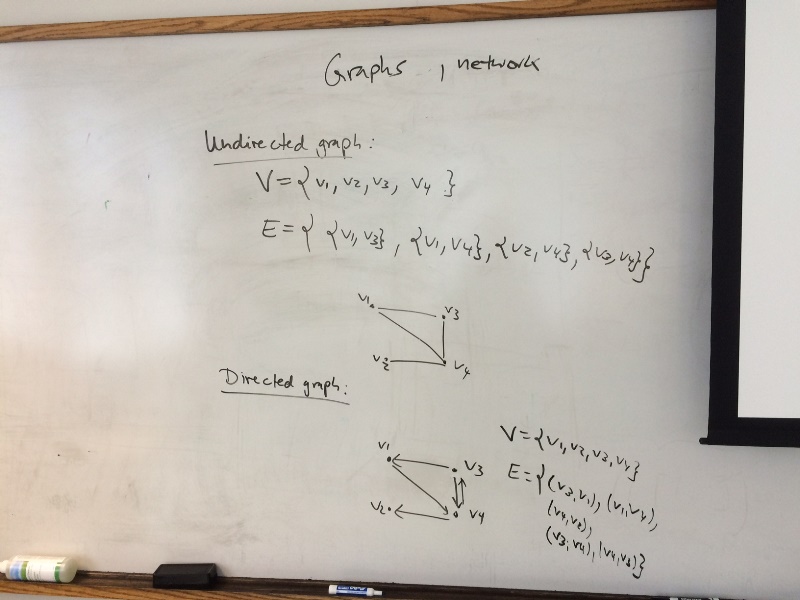 Graphs , network
Undirected graph:
V = { v1, v2, v3, v4 }
E = { {v1, v3}, {v1, v4}, {v2, v4}, {v3, v4} }
v1 v3
v2 v4
Directed graph:
v1 v3
v2 v4
V = {v1, v2, v3, v4}
E = {(v3, v1), (v1, v4),
(v4, v2),
(v3, v4), (v4, v3)}